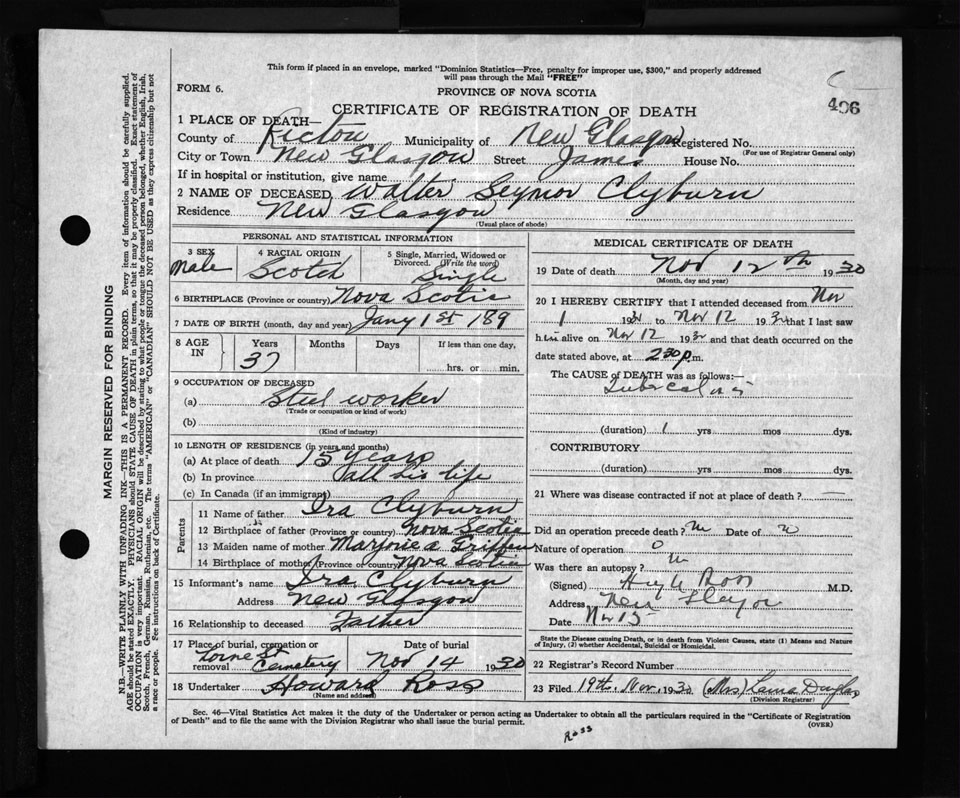 This form if placed in an envelope, marked "Dominion Statistics—Free, penalty for improper use, $300," and properly addressed
will pass through the Mail "FREE"
FORM 6.
PROVINCE OF NOVA SCOTIA
496
CERTIFICATE OF REGISTRATION OF DEATH
1 PLACE OF DEATH—
County of Pictou Municipality of New Glasgow Registered No.
(For use of Registrar General only)
City or Town New Glasgow Street James House No.
If in hospital or institution, give name
2 NAME OF DECEASED Walter Seymor Clyburn
Residence New Glasgow
(Usual place of abode)
PERSONAL AND STATISTICAL INFORMATION
3 SEX Male
4 RACIAL ORIGIN Scotch
5 Single, Married, Widowed or Divorced. (Write the word) Single
6 BIRTHPLACE (Province or country) Nova Scotia
7 DATE OF BIRTH (month, day and year) Jany 1st 189
8 AGE IN Years 37 Months Days If less than one day, hrs. or min.
9 OCCUPATION OF DECEASED
(a) Steel worker
(Trade or occupation or kind of work)
(b)
(Kind of industry)
10 LENGTH OF RESIDENCE (in years and months)
(a) At place of death 15 years
(b) In province all his life
(c) In Canada (if an immigrant)
Parents
11 Name of father Ira Clyburn
12 Birthplace of father (Province or country) Nova Scotia
13 Maiden name of mother Griffin
14 Birthplace of mother (Province or country) Nova Scotia
15 Informant's name Ira Clyburn
Address New Glasgow
16 Relationship to deceased Father
17 Place of burial, cremation or removal Lorne St Cemetery Date of burial Nov 14 1930
18 Undertaker Howard Ross
(Name and address)
MEDICAL CERTIFICATE OF DEATH
19 Date of death Nov 12th 1930
(Month, day and year)
20 I HEREBY CERTIFY that I attended deceased from Nov
1 1930 to Nov 12 1930 that I last saw
him alive on Nov 12 1930 and that death occurred on the
date stated above, at 230 p.m.
The CAUSE OF DEATH was as follows:—
Tuberculosis
(duration) 1 yrs mos dys.
CONTRIBUTORY
(duration) yrs mos dys.
21 Where was disease contracted if not at place of death? —
Did an operation precede death? Date of
Nature of operation o
Was there an autopsy?
(Signed) Hugh Ross M.D.
Address New Glasgow
Date Nov 15
State the Disease causing Death, or in death from Violent Causes, state (1) Means and Nature
of Injury, (2) whether Accidental, Suicidal or Homicidal.
22 Registrar's Record Number
23 Filed 19th. Nov. 1930 (Mrs)
(Division Registrar)
Sec. 46—Vital Statistics Act makes it the duty of the Undertaker or person acting as Undertaker to obtain all the particulars required in the "Certificate of Registration
of Death" and to file the same with the Division Registrar who shall issue the burial permit.
(OVER)
Ross
MARGIN RESERVED FOR BINDING
N.B.—WRITE PLAINLY WITH UNFADING INK—THIS IS A PERMANENT RECORD. Every item of information should be carefully supplied.
AGE should be stated EXACTLY. PHYSICIANS should STATE CAUSE OF DEATH in plain terms, so that it may be properly classified. Exact statement of
OCCUPATION is very important. RACIAL ORIGIN will be described by stating to what people or tongue the deceased person belonged, whether English, Irish,
Scotch, French, German, Russian, Ruthenian, etc. The terms "AMERICAN" or "CANADIAN" SHOULD NOT BE USED as they express citizenship but not
a race or people. See instructions on back of Certificate.